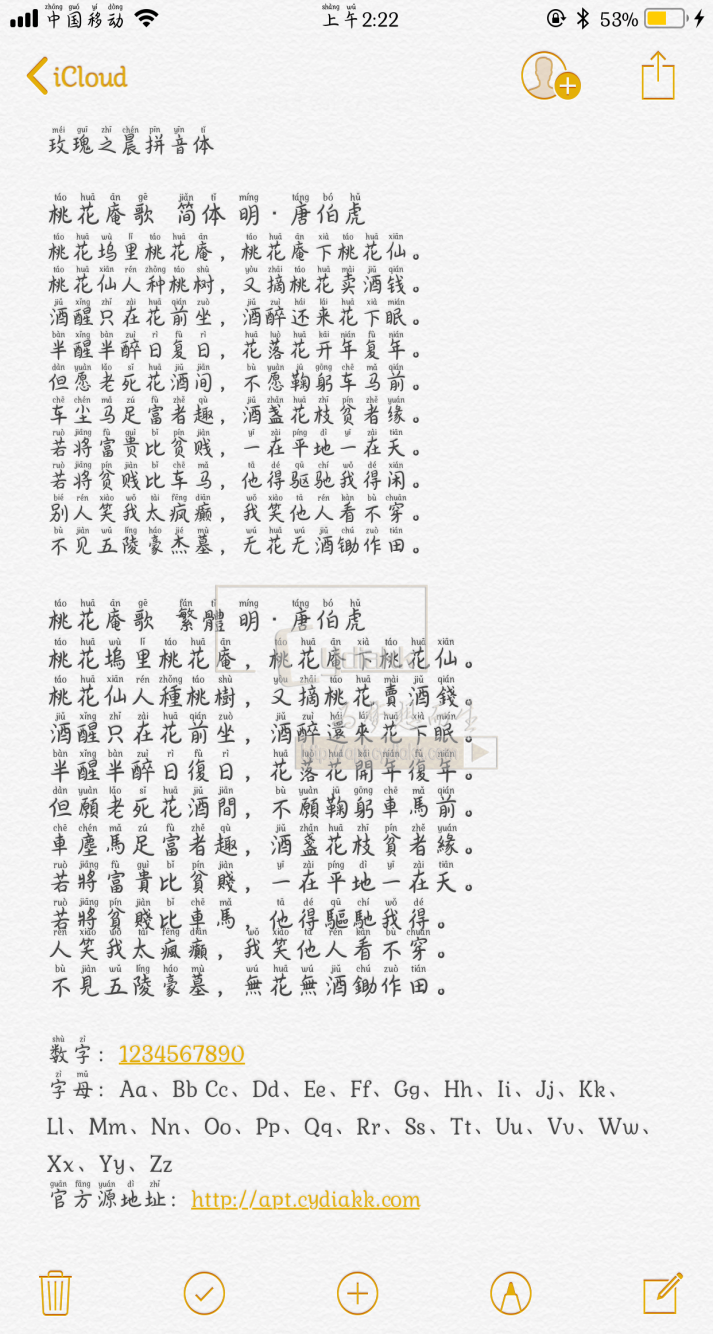 中国移动 上午2:22 53%
iCloud
玫瑰之晨拼音体
桃花庵歌 简体 明·唐伯虎
桃花坞里桃花庵，桃花庵下桃花仙。
桃花仙人种桃树，又摘桃花卖酒钱。
酒醒只在花前坐，酒醉还来花下眠。
半醒半醉日复日，花落花开年复年。
但愿老死花酒间，不愿鞠躬车马前。
车尘马足富者趣，酒盏花枝贫者缘。
若将富贵比贫贱，一在平地一在天。
若将贫贱比车马，他得驱驰我得闲。
别人笑我太疯癫，我笑他人看不穿。
不见五陵豪杰墓，无花无酒锄作田。
桃花庵歌 繁體 明·唐伯虎
桃花塢里桃花庵，桃花庵下桃花仙。
桃花仙人種桃樹，又摘桃花賣酒錢。
酒醒只在花前坐，酒醉還來花下眠。
半醒半醉日復日，花落花開年復年。
但願老死花酒間，不願鞠躬車馬前。
車塵馬足富者趣，酒盞花枝貧者緣。
若將富貴比貧賤，一在平地一在天。
若將貧賤比車馬，他得驅馳我得。
人笑我太瘋癲，我笑他人看不穿。
不見五陵豪墓，無花無酒鋤作田。
数字：1234567890
字母：Aa、Bb Cc、Dd、Ee、Ff、Gg、Hh、Ii、Jj、Kk、
Ll、Mm、Nn、Oo、Pp、Qq、Rr、Ss、Tt、Uu、Vv、Ww、
Xx、Yy、Zz
官方源地址：http://apt.cydiakk.com